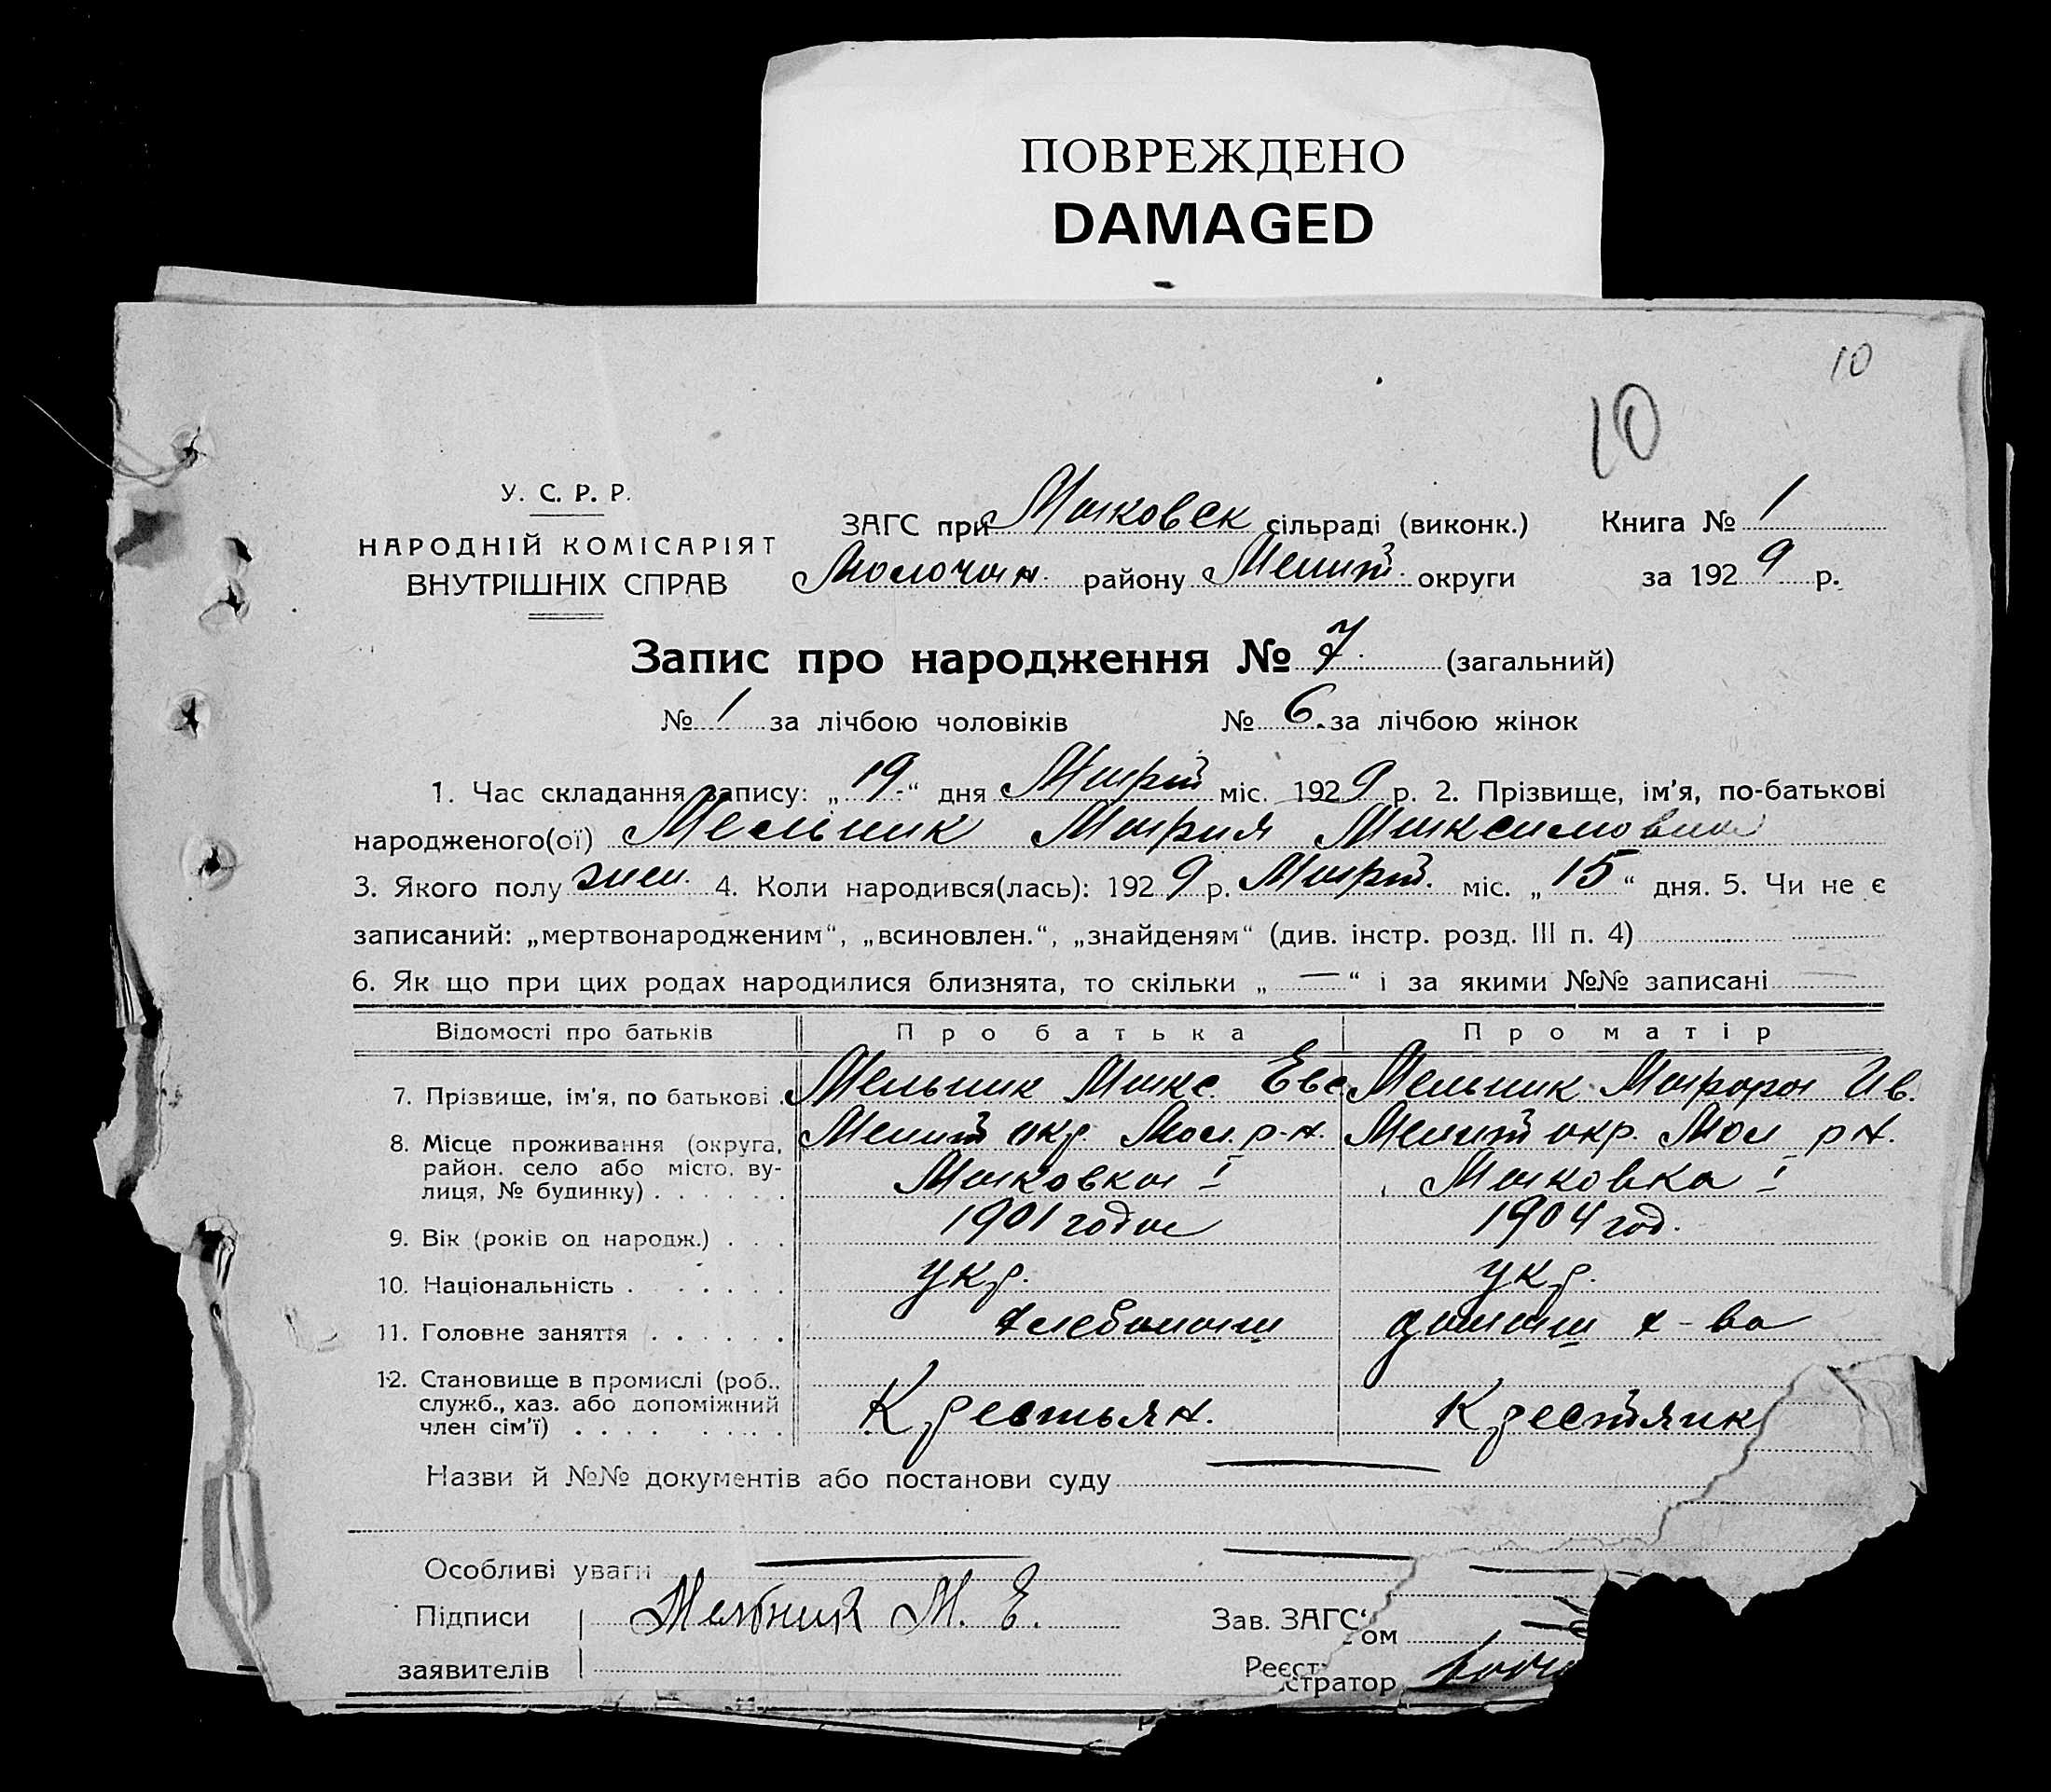 ПОВРЕЖДЕНО
DAMAGED
10
10
У. С. Р. Р.
НАРОДНІЙ КОМІСАРІЯТ
ВНУТРІШНІХ СПРАВ
ЗАГС при Маковск сільраді (виконк.) Книга № 1
Молочан. району Мелит. округи за 1929 р.
Запис про народження № 7 (загальний)
№ 1 за лічбою чоловіків № 6. за лічбою жінок
1. Час складання запису: „19“ дня Март міс. 1929 р. 2. Прізвище, ім'я, по-батькові
народженого(ої) Мельник Мария Максимовна
3. Якого полу жен. 4. Коли народився(лась): 1929 р. Март. міс. „15“ дня. 5. Чи не є
записаний: „мертвонародженим“, „всиновлен.“, „знайденям“ (див. інстр. розд. III п. 4)
6. Як що при цих родах народилися близнята, то скільки „—“ і за якими №№ записані —
Відомості про батьків Про батька Про матір
7. Прізвище, ім'я, по батькові . Мельник Макс. Евс Мельник Марфа Ив.
8. Місце проживання (округа, Мелит окр. Мол. р-н. Мелит окр. Мол р н.
район. село або місто. ву-
лиця, № будинку) . . . . . . Маковка I Маковка I
9. Вік (років од народж.) . . . 1901 года 1904 год.
10. Національність . . . . . . укр. укр.
11. Головне заняття . . . . . . хлебопаш домаш х-ва
12. Становище в промислі (роб.,
служб., хаз. або допоміжний
член сім'ї) . . . . . . . . Крестьян. Крестянк
Назви й №№ документів або постанови суду —
Особливі уваги — —
Підписи Мельник М. Е. Зав. ЗАГС'
ом
заявителів Реєст
стратор